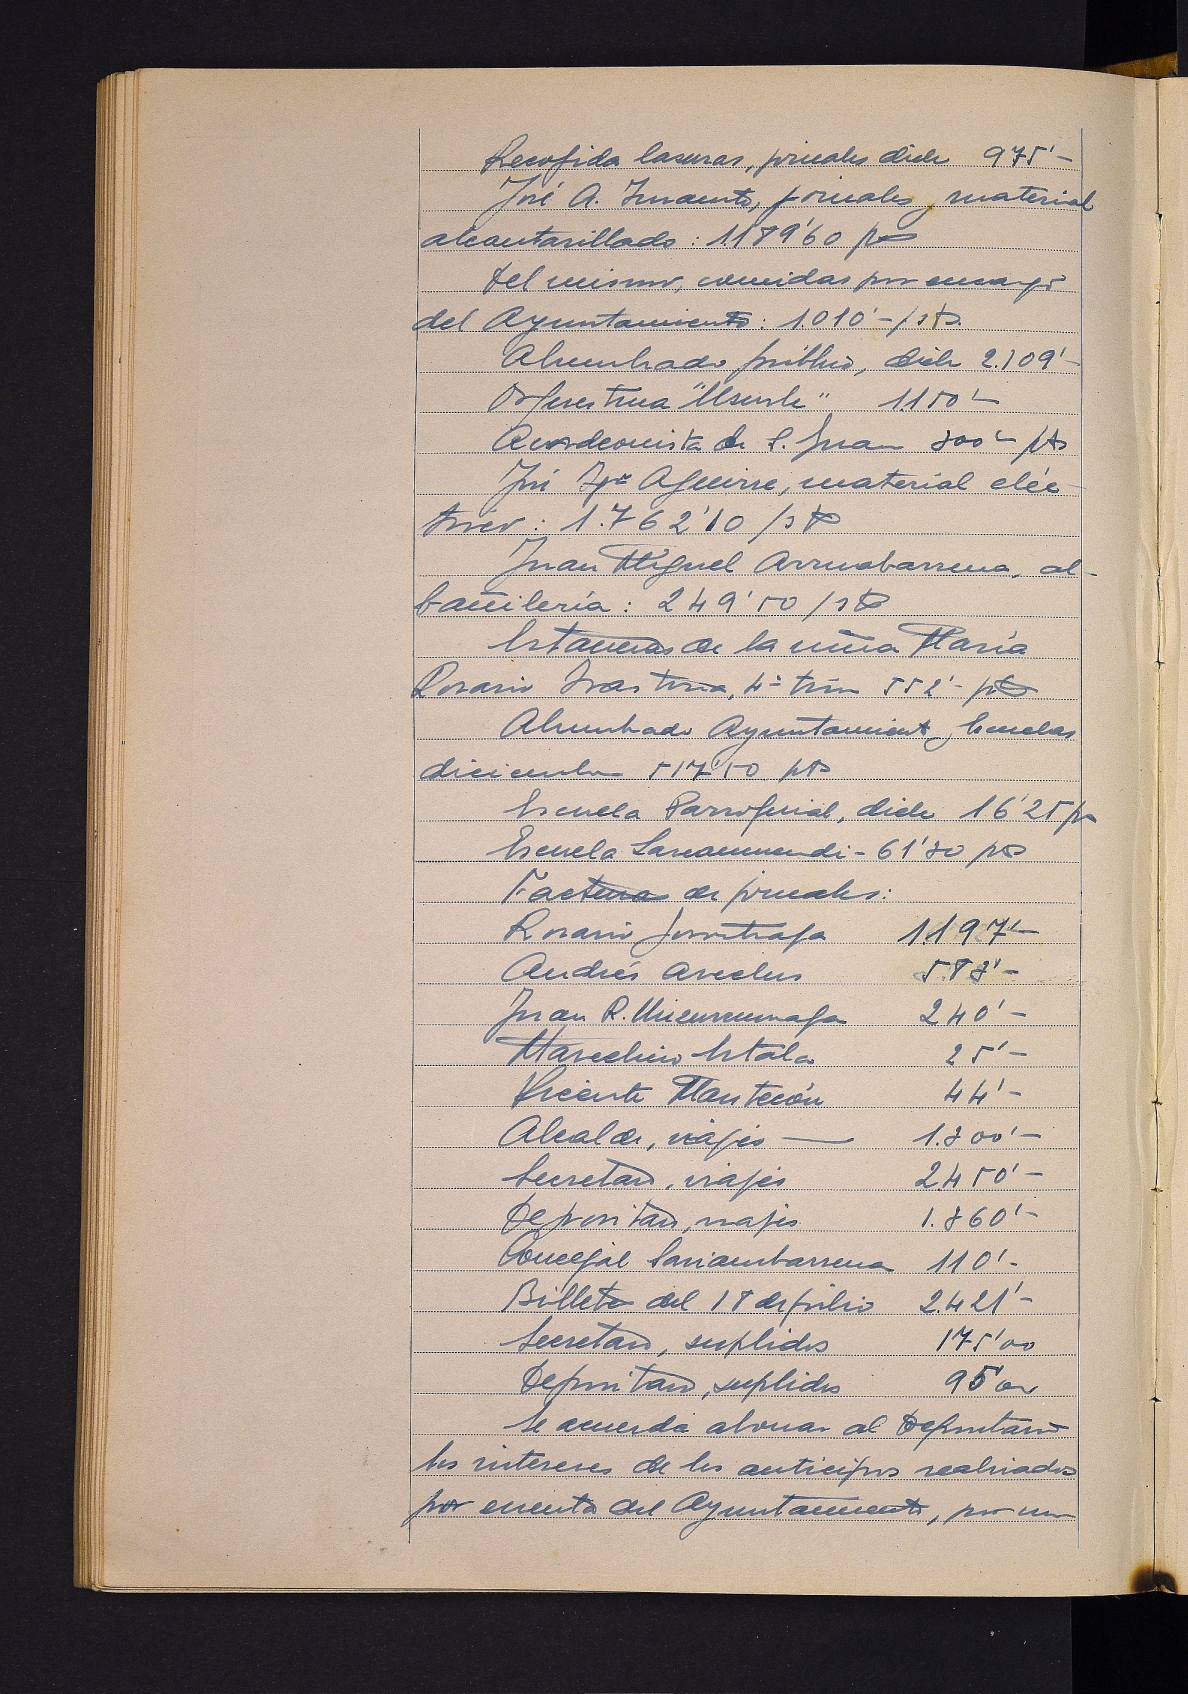 Recogida basuras, jornales dicbe 975'-
José A. jornales y material
alcantarillado: 1189'60 pts
Del mismo, comidas por encargo
del Ayuntamiento: 1.010'- pts.
Alumbrado público, dicbe 2.109'-
Orquestina 1.150'-
Acordeonista de S. Juan 300'- pts
José Igº Aguirre, material eléc-
trico: 1.762'10 pts
Juan Miguel Arruabarrena, al-
bañilería: 249'50 pts
Estancias de la niña María
Rosario 4º trim 552'- pts
Alumbrado Ayuntamiento y Escuelas
diciembre 517'50 pts
Escuela Parroquial, dicbe 16'25 pts
Escuela 61'30 pts
Facturas de jornales:
Rosario 1.197'-
Andrés Areclus 583'-
Juan R. 240'-
Marcelino 25'-
Vicente Mantecón 44'-
Alcalde, viajes — 1.300'-
Secretario, viajes 2.450'-
Depositario, viajes 1.360'-
Concejal 110'-
Billete del 18 de julio 2.421'-
Secretario, suplidos 175'00
Depositario, suplidos 95'00
Se acuerda abonar al Depositario
los intereses de los anticipos realizados
por cuenta del Ayuntamiento, por un